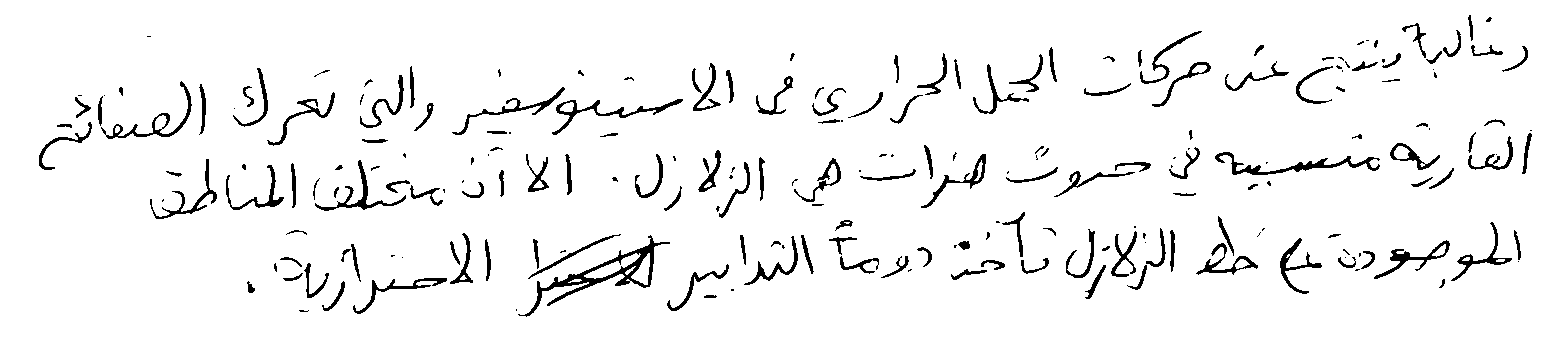 وغالباً ينتج عن حركات الحمل الحراري في الاستينوسفير والتي تحرك الصفائح
القارية متسببه في حدوث هزات هي الزلازل. الا أن مختلف المناطق
الموجودة على خط الزلازل تأخذ دوماً التدابير الاحترازية.